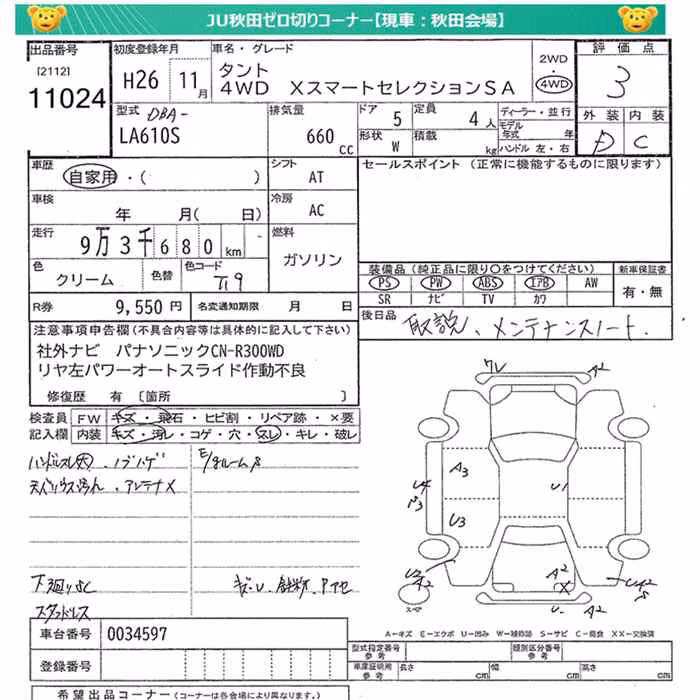 JU秋田ゼロ切りコーナー【現車：秋田会場】
出品番号 [2112] 11024
初度登録年月 H26 11月
車名・グレード タント
4WD XスマートセレクションSA
2WD ・ 4WD
評価点 3
外装 内装
D C
型式 DBA-
LA610S
排気量 660 cc
ドア 5
定員 4人
形状 W
積載 kg
ディーラー・並行
モデル年式 年
ハンドル 左・右
車歴 自家用・( )
シフト AT
車検 年 月( 日)
冷房 AC
走行 9万3千680km
燃料 ガソリン
色 クリーム 色替 色コード T19
R券 9,550円 名変通知期限 月 日
セールスポイント (正常に機能するものに限ります)
装備品 (純正品に限り○をつけてください) 新車保証書
PS PW ABS エアB AW 有・無
SR ナビ TV カワ
後日品 取説、メンテナンスノート.
注意事項申告欄(不具合内容等は具体的に記入して下さい)
社外ナビ パナソニックCN-R300WD
リヤ左パワーオートスライド作動不良
修復歴 有 [箇所 ]
検査員記入欄
FW キズ・飛石・ヒビ割・リペア跡・×要
内装 キズ・汚レ・コゲ・穴・スレ・キレ・破レ
ハンドルスレ大
アンテナX
E/gルームS
下廻りSC
スタッドレス
ワレ A2
A3 U1
U4
U3
A2
A2
X
U- A2
スペア
A-キズ E-エクボ U-凹み W-補修跡 S-サビ C-腐食 XX-交換済
車台番号 0034597
登録番号
型式指定番号 参考
類別区分番号 参考
車庫証明用 参考 長さ cm 幅 cm 高さ cm
希望出品コーナー(コーナーは各会場により異なります。)